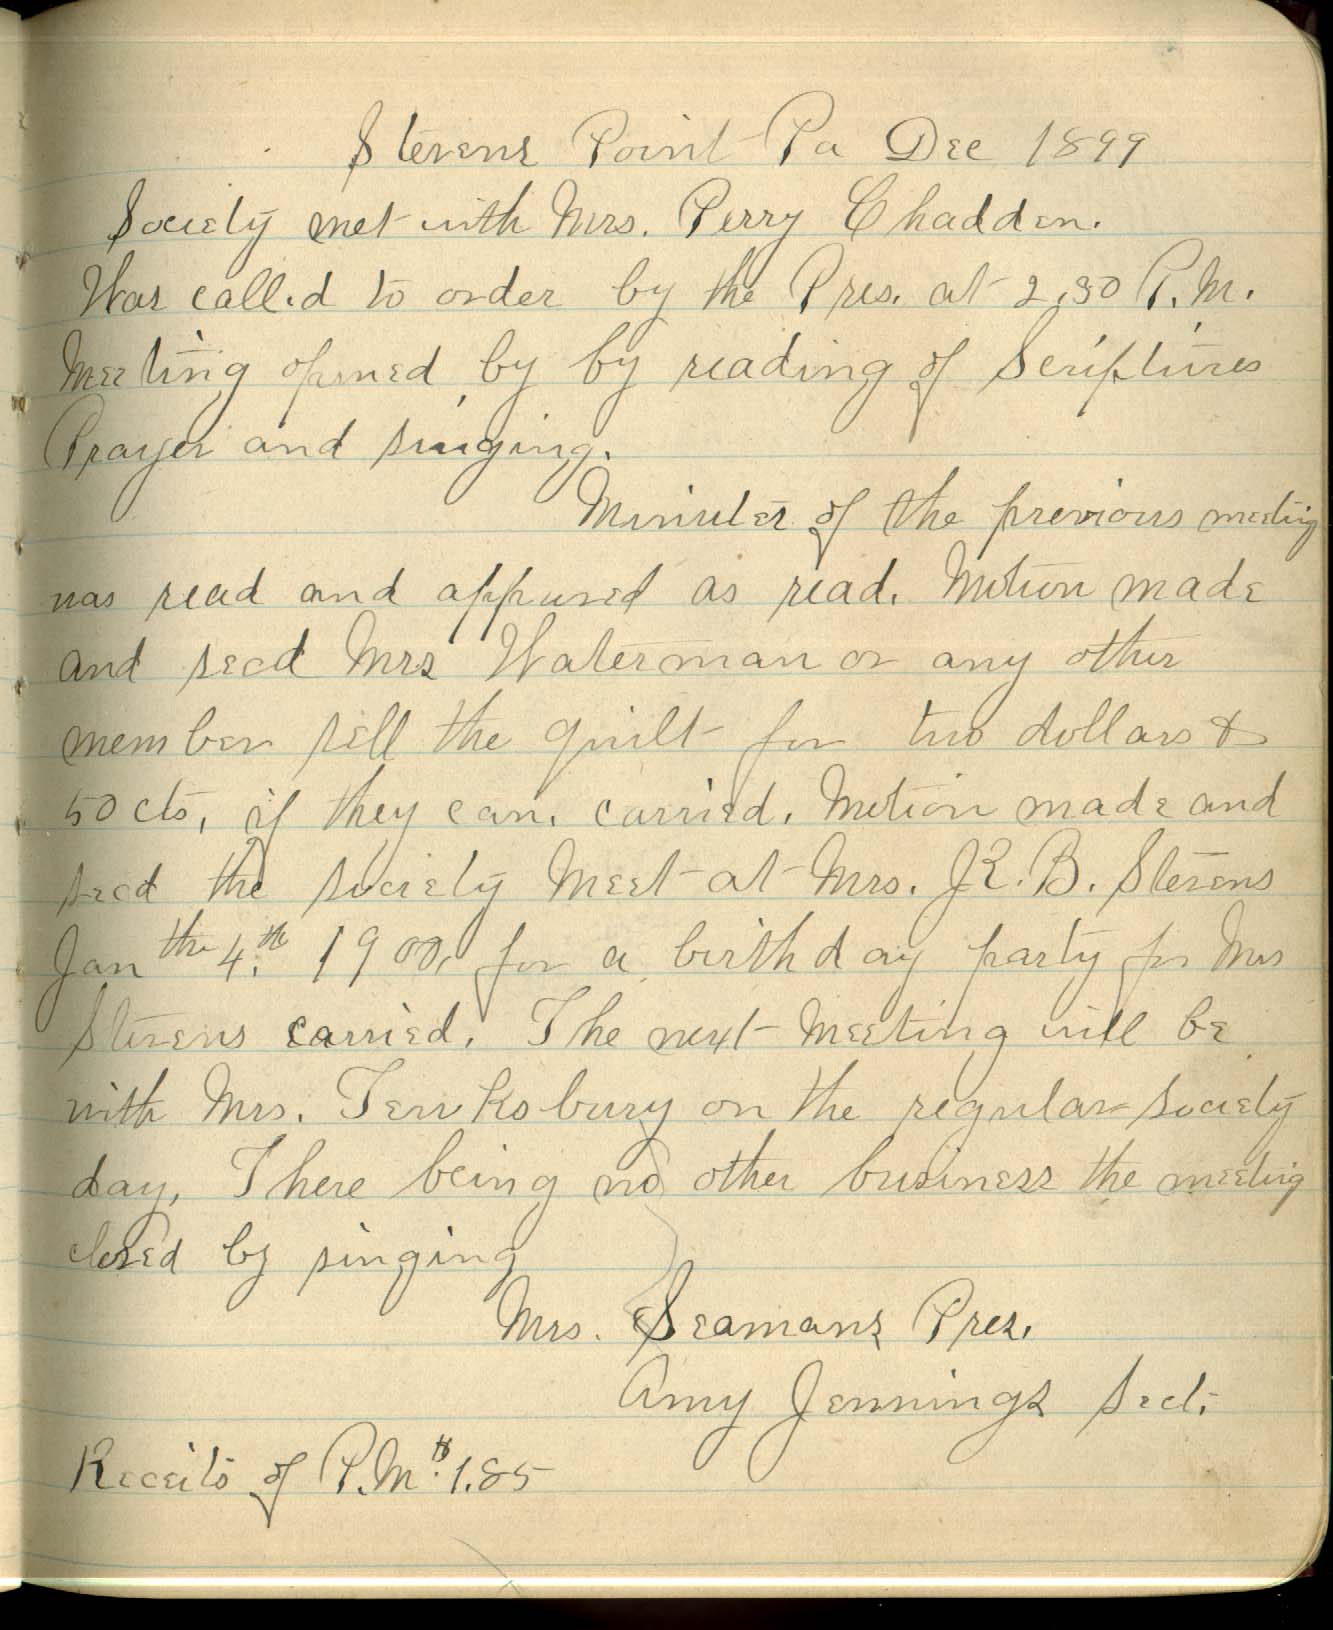 Stevens Point Pa Dec 1899
Society met with Mrs. Perry Chadden.
Was called to order by the Pres. at 2,30 P.M.
Meeting opened by by reading of Scriptures
Prayer and singing.
Minutes of the previous meeting
was read and appuved as read. Motion made
and secd Mrs Waterman or any other
member sell the quilt for two dollars &
50 cts, if they can. carried. Motion made and
secd the society Meet at Mrs. J.R.B. Stevens
Jan the 4.th 1900, for a birthday party for Mrs
Stevens carried. The next Meeting will be
with Mrs. Tewksbury on the regular society
day, There being no other business the meeting
closed by singing
Mrs. Seamans Pres.
Amy Jennings Sect.
Receits of P.M. $1.85